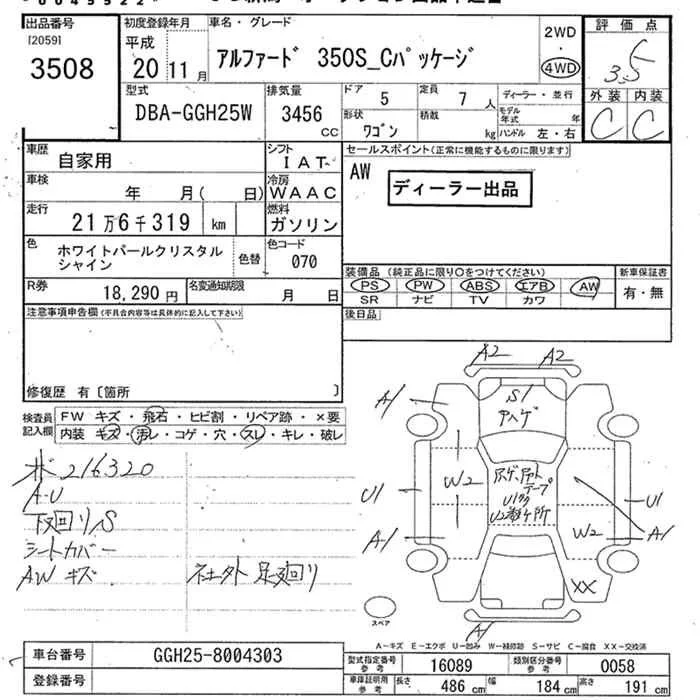 出品番号
[2059]
3508
初度登録年月
平成
20 11月
車名・グレード
アルファード 350S_Cパッケージ
2WD
・
4WD
評価点
3.5
型式
DBA-GGH25W
排気量
3456
cc
ドア 5
定員 7 人
ディーラー・並行
形状 ワゴン
積載 kg
モデル年式 年
ハンドル 左・右
外装 内装
C C
車歴 自家用
シフト IAT
セールスポイント(正常に機能するものに限ります)
AW
ディーラー出品
車検 年 月( 日)
冷房 WAAC
走行 21万6千319 km
燃料 ガソリン
色 ホワイトパールクリスタル
シャイン
色替
色コード 070
装備品(純正品に限り○をつけてください)
新車保証書
PS PW ABS エアB AW
SR ナビ TV カワ
有・無
R券 18,290 円
名変通知期限 月 日
後日品
注意事項申告欄(不具合内容等は具体的に記入して下さい)
修復歴 有〔箇所 〕
検査員記入欄
FW キズ・飛石・ヒビ割・リペア跡・×要
内装 キズ・汚レ・コゲ・穴・スレ・キレ・破レ
216320
A-U
下廻り/S
シートカバー
AW キズ
足廻り
A2 A2
A1 S1
ハゲ
W2
テープ
U1
U2
U1 U1
A1 W2 A1
XX
A1
スペア
A-キズ E-エクボ U-凹み W-補修跡 S-サビ C-腐食 XX-交換済
車台番号 GGH25-8004303
登録番号
型式指定番号 参考 16089
類別区分番号 参考 0058
車庫証明用 参考 長さ 486 cm 幅 184 cm 高さ 191 cm